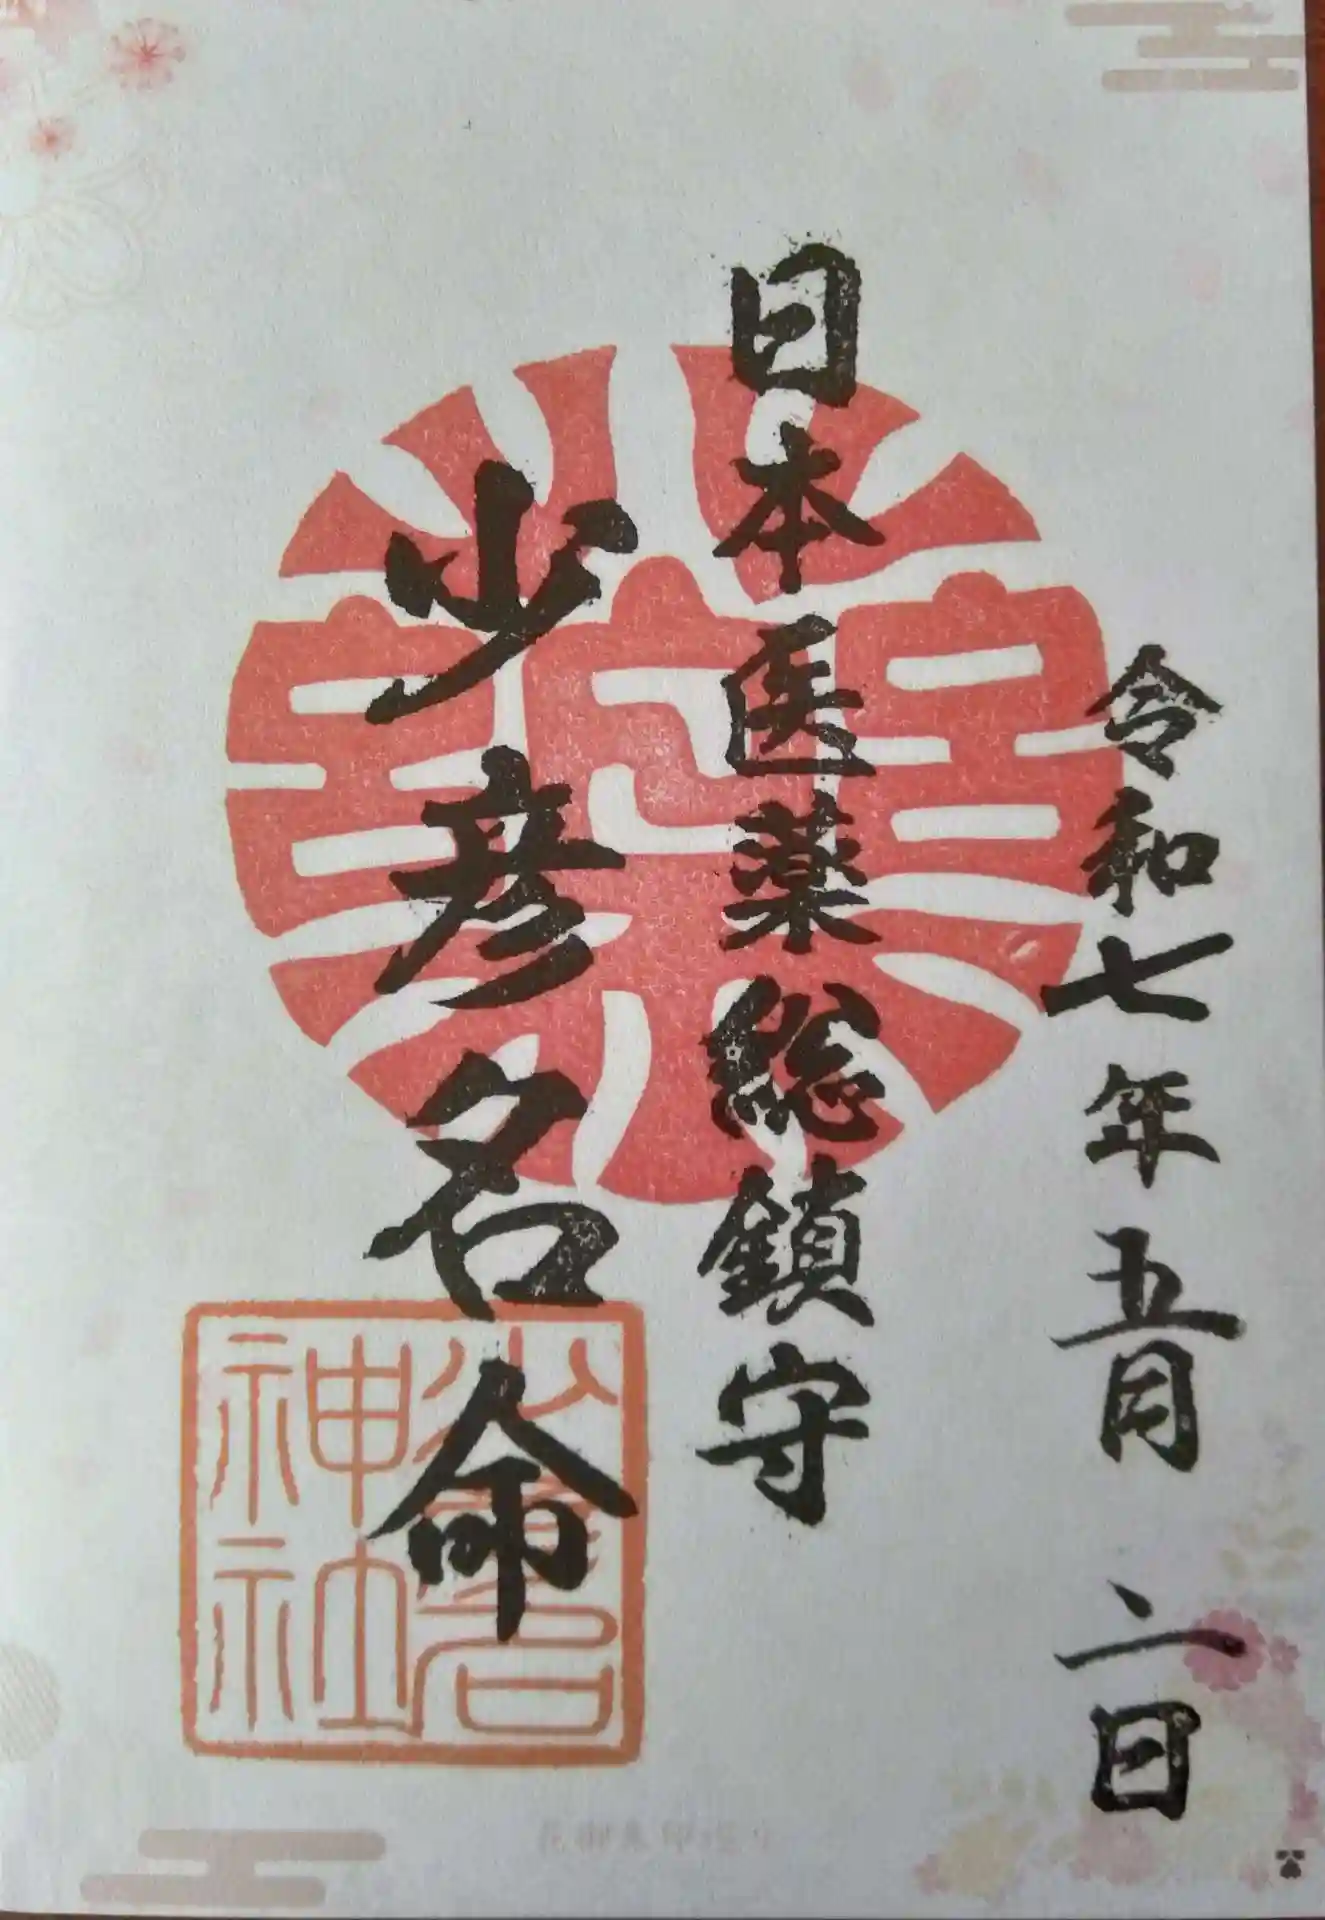 令和七年五月二日
日本医薬総鎮守
少彦名命
少彦名
神社
花御朱印巡り